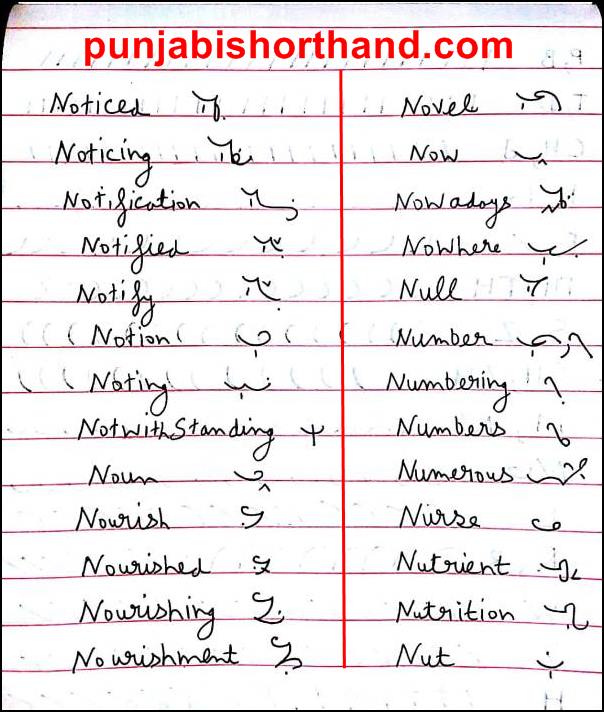 punjabishorthand.com
Noticed
Noticing
Notification
Notified
Notify
Notion
Noting
NotwithStanding
Noun
Nourish
Nourished
Nourishing
Nourishment
Novel
Now
Nowadays
Nowhere
Null
Number
Numbering
Numbers
Numerous
Nurse
Nutrient
Nutrition
Nut